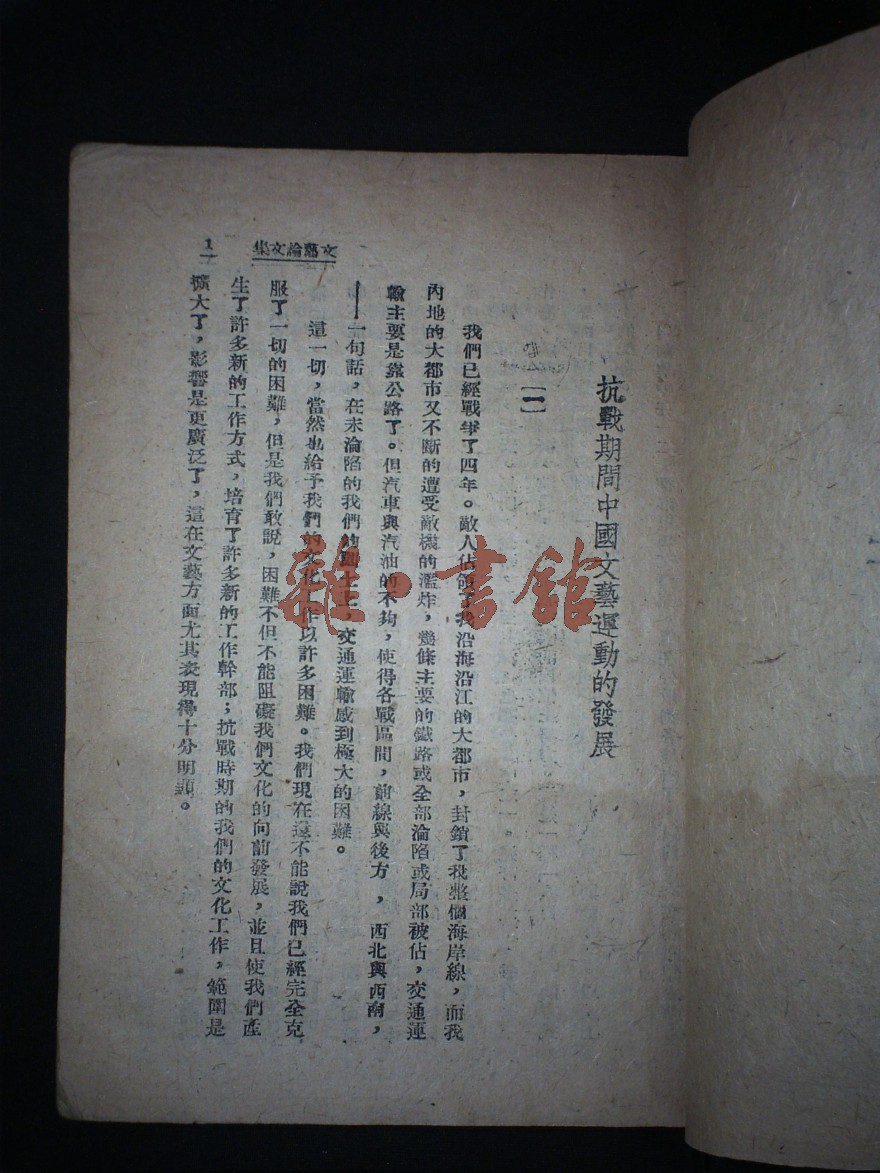 抗戰期間中國文藝運動的發展
【一】
我們已經戰爭了四年。敵人佔領了我沿海沿江的大都市,封鎖了我整個海岸線,而我
內地的大都市又不斷的遭受敵機的濫炸,幾條主要的鐵路或全部淪陷或局部被佔,交通運
輸主要是靠公路了。但汽車與汽油的不夠,使得各戰區間,前線與後方,西北與西南,
——一句話,在未淪陷的我們的國土上,交通運輸感到極大的困難。
這一切,當然也給予我們的文化工作以許多困難。我們現在還不能說我們已經完全克
服了一切的困難,但是我們敢說,困難不但不能阻礙我們文化的向前發展,並且使我們產
生了許多新的工作方式,培育了許多新的工作幹部;抗戰時期的我們的文化工作,範圍是
擴大了,影響是更廣泛了,這在文藝方面尤其表現得十分明顯。
文藝論文集
1
雜·書館